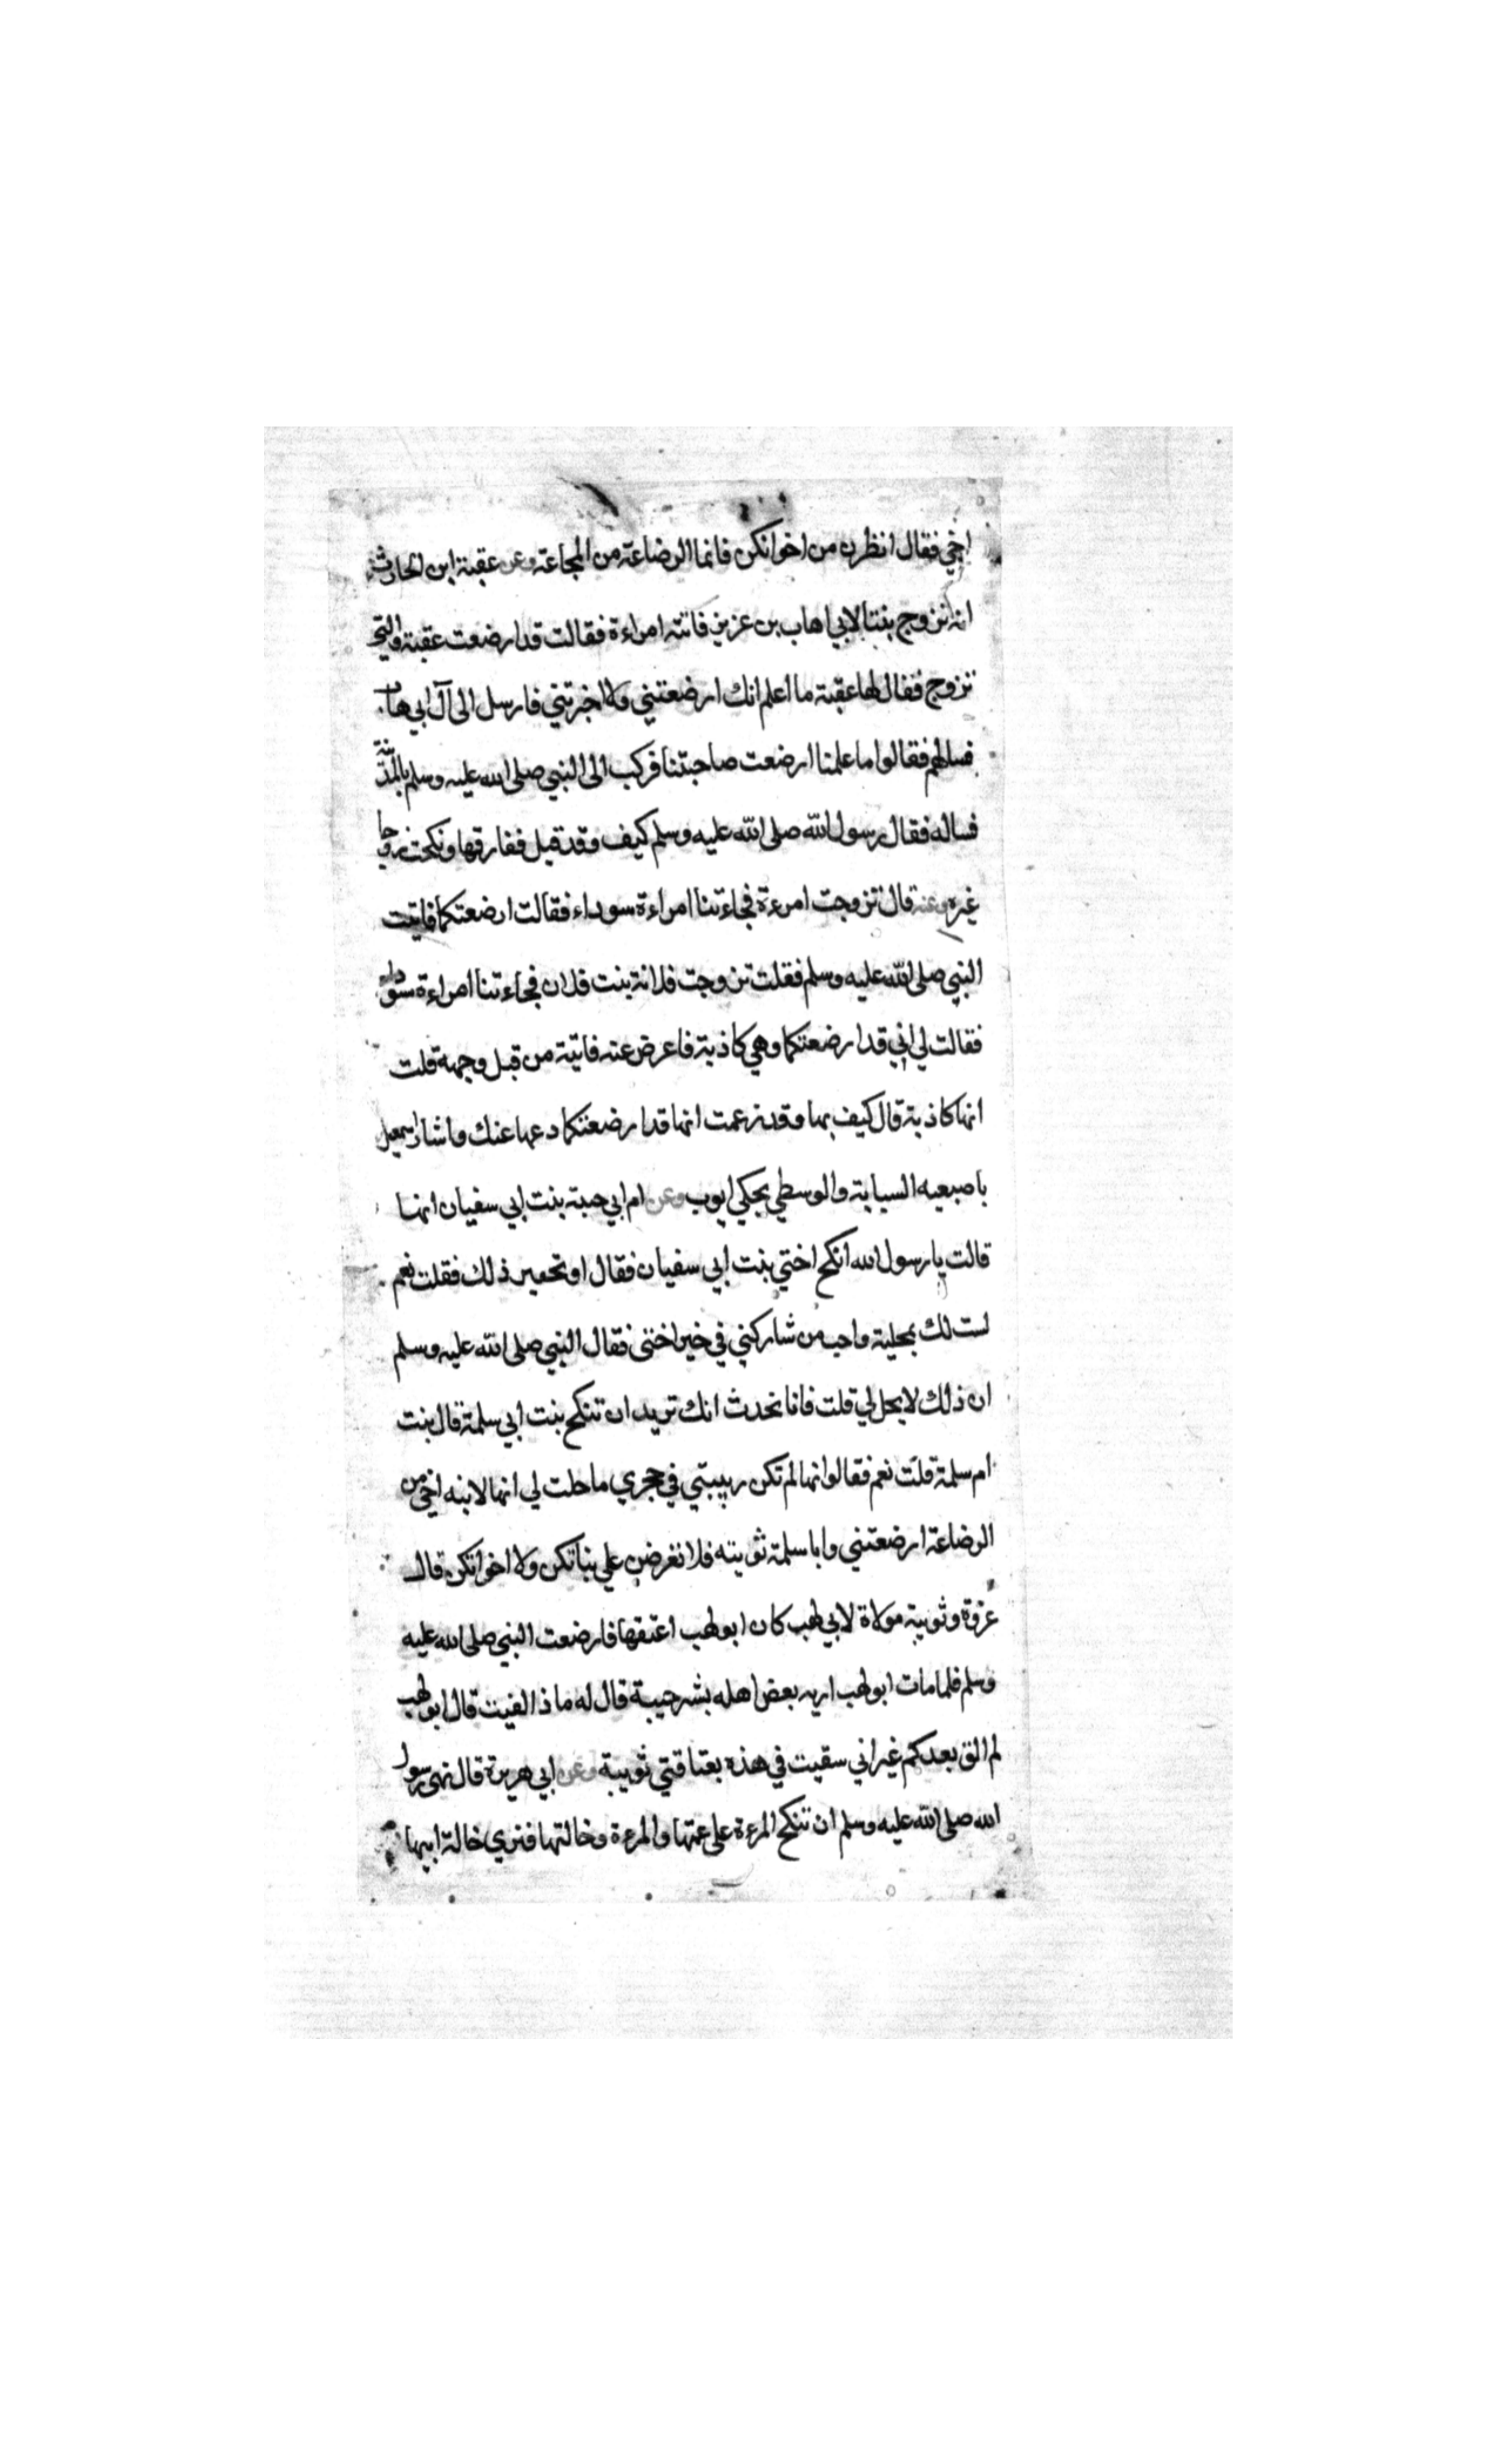 اخي فقال انظرن من اخوانكن فانما الرضاعة من المجاعة وعن عقبة ابن الحارث
انه تزوج بنتا لابي اهاب بن عزيز فاتته امراءة فقالت قد ارضعت عقبة والتي
تزوج فقال لها عقبة ما اعلم انك ارضعتني ولا اخبرتني فارسل الى آل ابي هاب
فسالهم فقالوا ما علمنا ارضعت صاحبتنا فركب الى النبي صلى الله عليه وسلم بالمدينة
فساله فقال رسول الله صلى الله عليه وسلم كيف وقد قيل ففارقها ونكحت زوجا
غيره وعنه قال تزوجت امرءة فجاءتنا امراءة سوداء فقالت ارضعتكما فاتيت
النبي صلى الله عليه وسلم فقلت تزوجت فلانة بنت فلان فجاءتنا امراءة سوداء
فقالت لي اني قد ارضعتكما وهي كاذبة فاعرض عنه فاتيته من قبل وجهه قلت
انها كاذبة قال كيف بها وقد زعمت انها قد ارضعتكما دعها عنك واشار اسمعيل
باصبعيه السبابة والوسطي يحكي ايوب وعن ام ابي حبيبة بنت ابي سفيان انها
قالت يا رسول الله انكح اختي بنت ابي سفيان فقال اوتحبين ذلك فقلت نعم
لست لك بمخلية واحب من شاركني في خير اختى فقال النبي صلى الله عليه وسلم
ان ذلك لا يحل لي قلت فانا نحدث انك تريد ان تنكح بنت ابي سلمة قال بنت
ام سلمة قلت نعم فقالوا انها لم تكن ربيبتي في حجري ما حلت لي انها لابنه اخي من
الرضاعة ارضعتني وابا سلمة ثويبه فلا تعرضن علي بناتكن ولا اخواتكن قال
عروة وثويبة مولاة لابي لهب كان ابو لهب اعتقها فارضعت النبي صلى الله عليه
وسلم فلما مات ابو لهب اريه بعض اهله بشر حيبة قال له ماذا لقيت قال ابو لهب
لم الق بعدكم غير اني سقيت في هذه بعتاقتي ثويبة وعن ابي هريرة قال نهى رسول
الله صلى الله عليه وسلم ان تنكح المرءة على عمتها والمرءة وخالتها فنري خالة ابيها